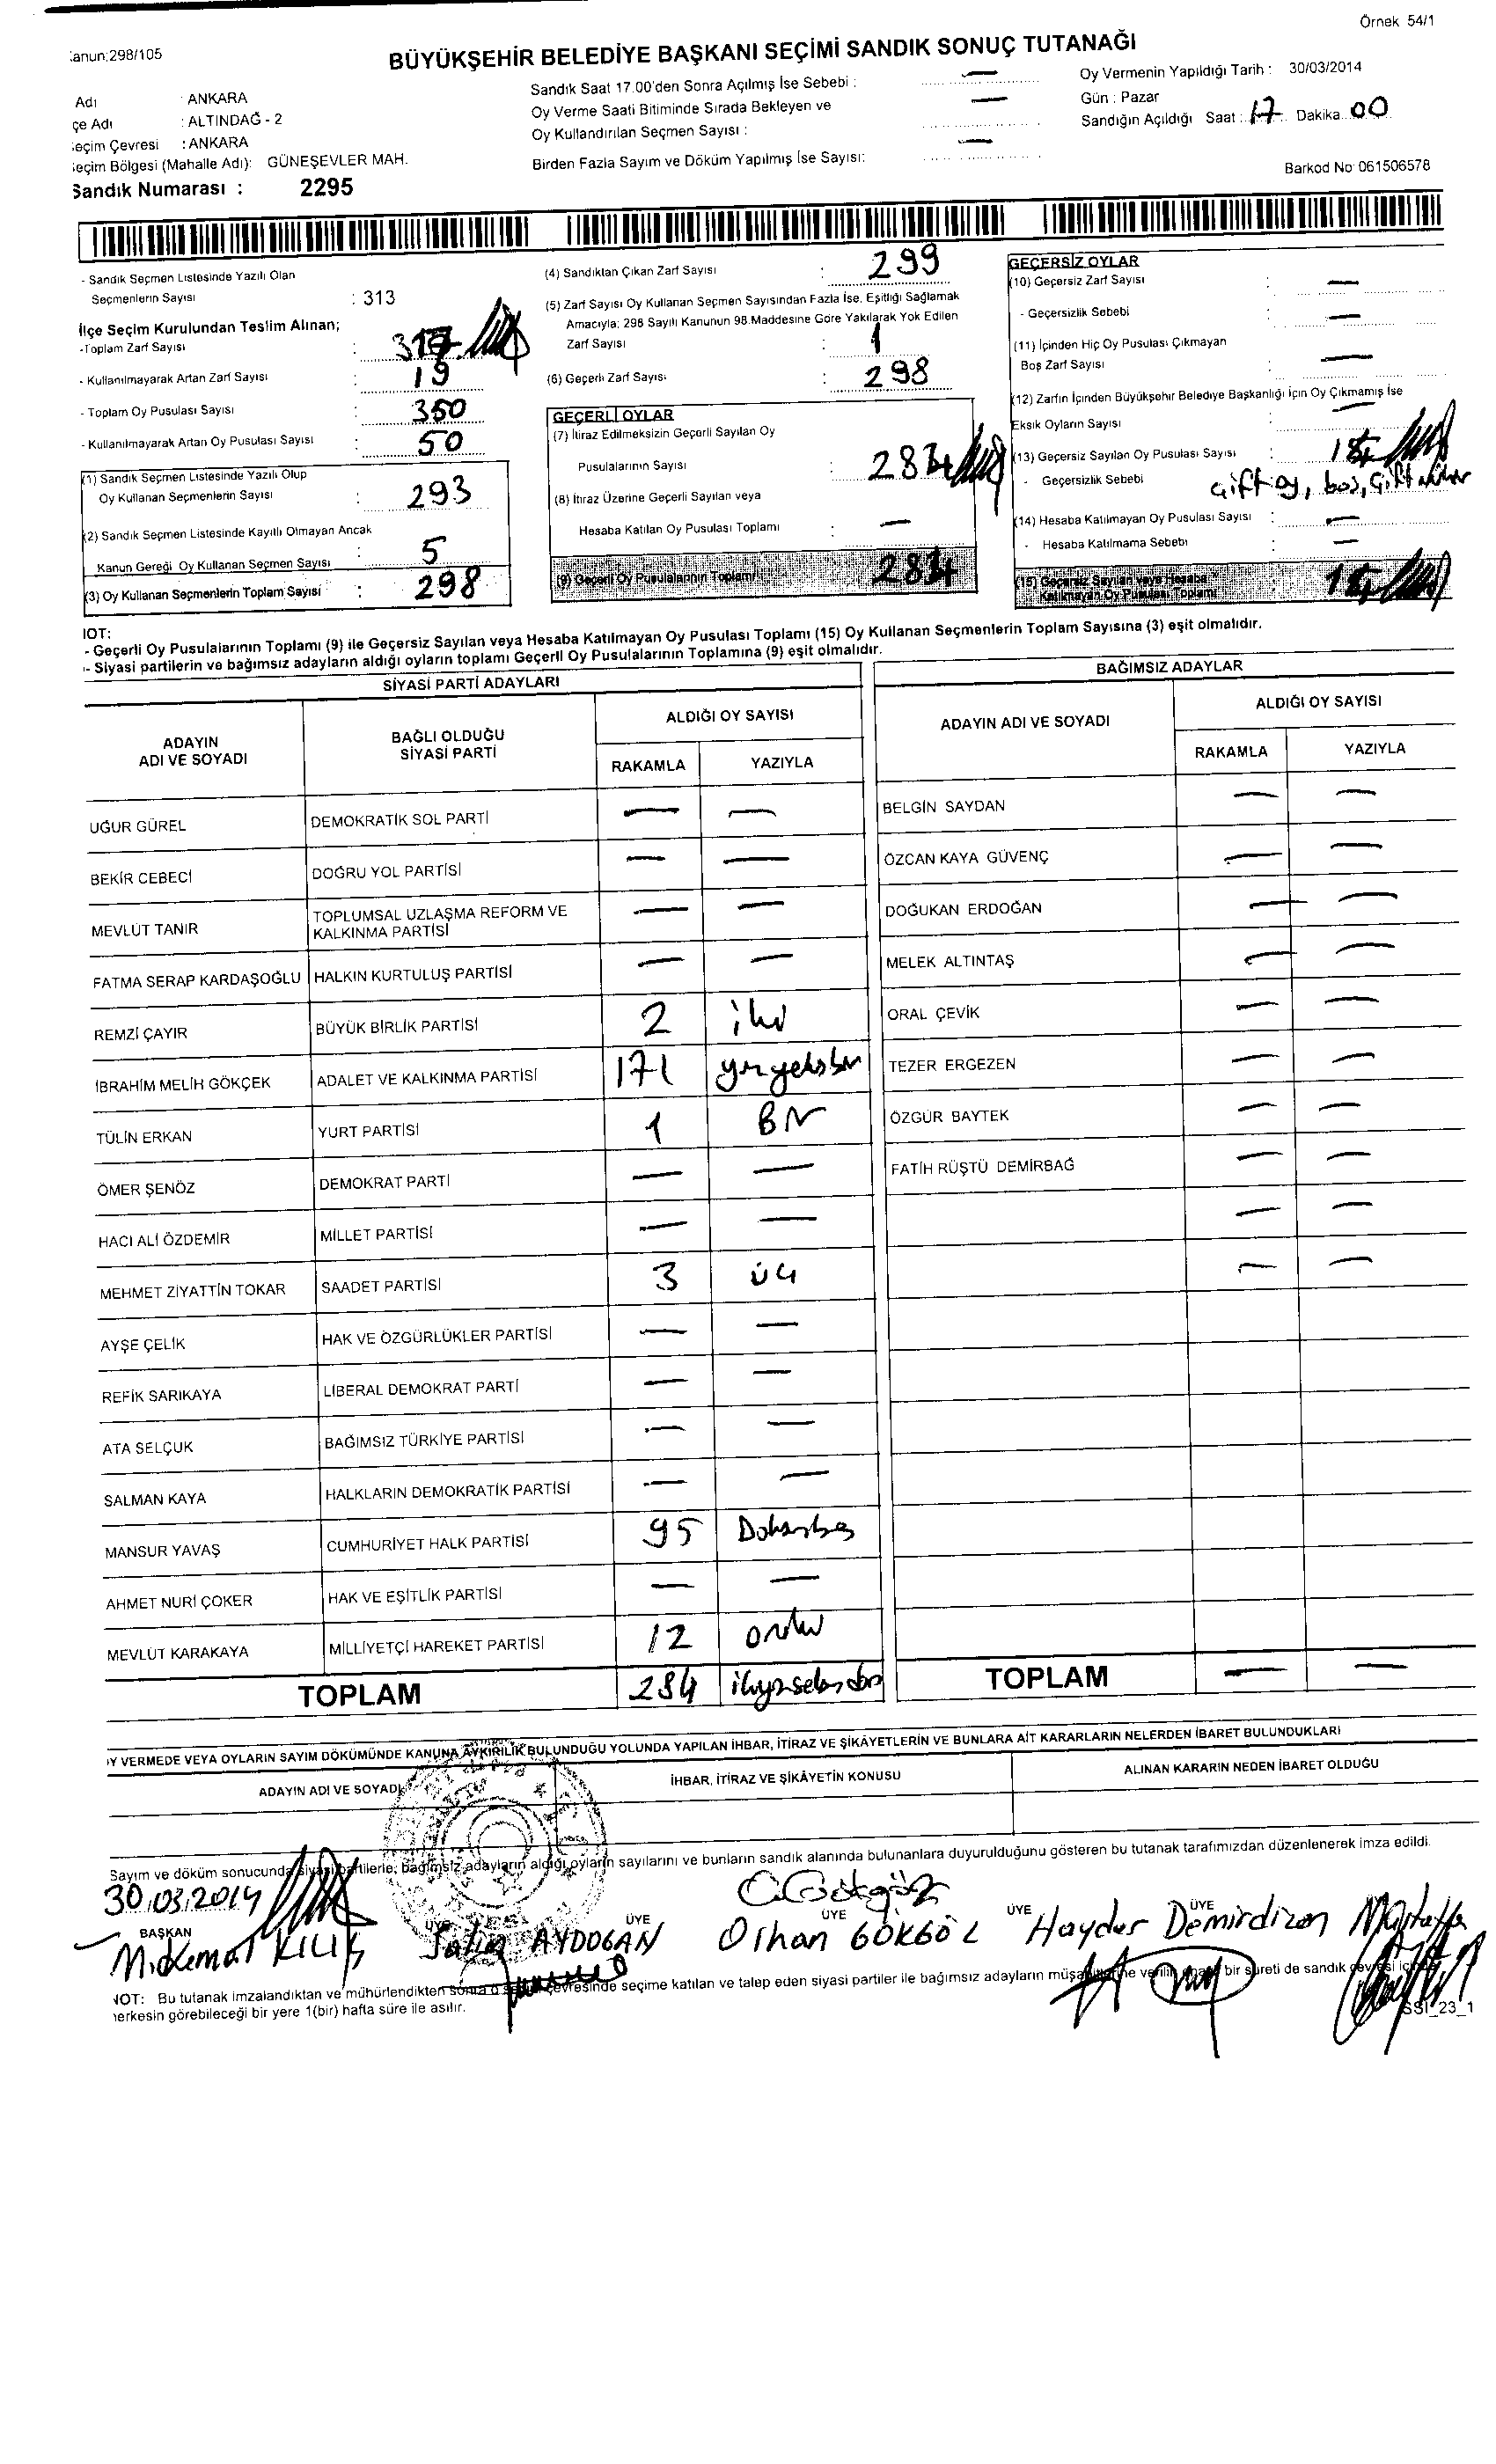 Örnek 54/1
anun:298/105
BÜYÜKŞEHİR BELEDİYE BAŞKANI SEÇİMİ SANDIK SONUÇ TUTANAĞI
Adı : ANKARA
çe Adı : ALTINDAĞ - 2
eçim Çevresi : ANKARA
eçim Bölgesi (Mahalle Adı): GÜNEŞEVLER MAH.
Sandık Numarası : 2295
Sandık Saat 17.00'den Sonra Açılmış İse Sebebi : —
Oy Verme Saati Bitiminde Sırada Bekleyen ve
Oy Kullandırılan Seçmen Sayısı : —
Birden Fazla Sayım ve Döküm Yapılmış İse Sayısı: —
Oy Vermenin Yapıldığı Tarih : 30/03/2014
Gün : Pazar
Sandığın Açıldığı Saat : 17 Dakika 00
Barkod No: 061506578
- Sandık Seçmen Listesinde Yazılı Olan
Seçmenlerin Sayısı : 313
İlçe Seçim Kurulundan Teslim Alınan;
-Toplam Zarf Sayısı :
- Kullanılmayarak Artan Zarf Sayısı : 19
- Toplam Oy Pusulası Sayısı : 350
- Kullanılmayarak Artan Oy Pusulası Sayısı : 50
(1) Sandık Seçmen Listesinde Yazılı Olup
Oy Kullanan Seçmenlerin Sayısı : 293
(2) Sandık Seçmen Listesinde Kayıtlı Olmayan Ancak
Kanun Gereği Oy Kullanan Seçmen Sayısı : 5
(3) Oy Kullanan Seçmenlerin Toplam Sayısı : 298
(4) Sandıktan Çıkan Zarf Sayısı : 299
(5) Zarf Sayısı Oy Kullanan Seçmen Sayısından Fazla İse, Eşitliği Sağlamak
Amacıyla; 298 Sayılı Kanunun 98.Maddesine Göre Yakılarak Yok Edilen
Zarf Sayısı : 1
(6) Geçerli Zarf Sayısı : 298
GEÇERLİ OYLAR
(7) İtiraz Edilmeksizin Geçerli Sayılan Oy
Pusulalarının Sayısı : 284
(8) İtiraz Üzerine Geçerli Sayılan veya
Hesaba Katılan Oy Pusulası Toplamı : —
(9) Geçerli Oy Pusulalarının Toplamı : 284
GEÇERSİZ OYLAR
(10) Geçersiz Zarf Sayısı : —
- Geçersizlik Sebebi : —
(11) İçinden Hiç Oy Pusulası Çıkmayan
Boş Zarf Sayısı : —
(12) Zarfın İçinden Büyükşehir Belediye Başkanlığı İçin Oy Çıkmamış İse
Eksik Oyların Sayısı —
(13) Geçersiz Sayılan Oy Pusulası Sayısı : 14
- Geçersizlik Sebebi çift oy, boş, çift
(14) Hesaba Katılmayan Oy Pusulası Sayısı : —
- Hesaba Katılmama Sebebi : —
(15) Geçersiz Sayılan veya Hesaba
Katılmayan Oy Pusulası Toplamı : 14
IOT:
- Geçerli Oy Pusulalarının Toplamı (9) ile Geçersiz Sayılan veya Hesaba Katılmayan Oy Pusulası Toplamı (15) Oy Kullanan Seçmenlerin Toplam Sayısına (3) eşit olmalıdır.
- Siyasi partilerin ve bağımsız adayların aldığı oyların toplamı Geçerli Oy Pusulalarının Toplamına (9) eşit olmalıdır.
SİYASİ PARTİ ADAYLARI
ADAYIN ADI VE SOYADI BAĞLI OLDUĞU SİYASİ PARTİ ALDIĞI OY SAYISI
RAKAMLA YAZIYLA
UĞUR GÜREL DEMOKRATİK SOL PARTİ — —
BEKİR CEBECİ DOĞRU YOL PARTİSİ — —
MEVLÜT TANIR TOPLUMSAL UZLAŞMA REFORM VE KALKINMA PARTİSİ — —
FATMA SERAP KARDAŞOĞLU HALKIN KURTULUŞ PARTİSİ — —
REMZİ ÇAYIR BÜYÜK BİRLİK PARTİSİ 2 iki
İBRAHİM MELİH GÖKÇEK ADALET VE KALKINMA PARTİSİ 171 yüzyetmişbir
TÜLİN ERKAN YURT PARTİSİ 1 Bir
ÖMER ŞENÖZ DEMOKRAT PARTİ — —
HACI ALİ ÖZDEMİR MİLLET PARTİSİ — —
MEHMET ZİYATTİN TOKAR SAADET PARTİSİ 3 üç
AYŞE ÇELİK HAK VE ÖZGÜRLÜKLER PARTİSİ — —
REFİK SARIKAYA LİBERAL DEMOKRAT PARTİ — —
ATA SELÇUK BAĞIMSIZ TÜRKİYE PARTİSİ — —
SALMAN KAYA HALKLARIN DEMOKRATİK PARTİSİ — —
MANSUR YAVAŞ CUMHURİYET HALK PARTİSİ 95 Doksanbeş
AHMET NURİ ÇOKER HAK VE EŞİTLİK PARTİSİ — —
MEVLÜT KARAKAYA MİLLİYETÇİ HAREKET PARTİSİ 12 oniki
TOPLAM 284 ikiyüzseksendört
BAĞIMSIZ ADAYLAR
ADAYIN ADI VE SOYADI ALDIĞI OY SAYISI
RAKAMLA YAZIYLA
BELGİN SAYDAN — —
ÖZCAN KAYA GÜVENÇ — —
DOĞUKAN ERDOĞAN — —
MELEK ALTINTAŞ — —
ORAL ÇEVİK — —
TEZER ERGEZEN — —
ÖZGÜR BAYTEK — —
FATİH RÜŞTÜ DEMİRBAĞ — —
— —
— —
TOPLAM — —
Y VERMEDE VEYA OYLARIN SAYIM DÖKÜMÜNDE KANUNA AYKIRILIK BULUNDUĞU YOLUNDA YAPILAN İHBAR, İTİRAZ VE ŞİKÂYETLERİN VE BUNLARA AİT KARARLARIN NELERDEN İBARET BULUNDUKLARI
ADAYIN ADI VE SOYADI İHBAR, İTİRAZ VE ŞİKÂYETİN KONUSU ALINAN KARARIN NEDEN İBARET OLDUĞU
Sayım ve döküm sonucunda siyasi partilerle, bağımsız adayların aldığı oyların sayılarını ve bunların sandık alanında bulunanlara duyurulduğunu gösteren bu tutanak tarafımızdan düzenlenerek imza edildi.
30.03.2014
BAŞKAN ÜYE ÜYE ÜYE ÜYE ÜYE
M.Kemal KILIÇ AYDOGAN Orhan GÖKGÖL Haydar Demirdizen Mustafa
IOT: Bu tutanak imzalandıktan ve mühürlendikten sonra o seçim çevresinde seçime katılan ve talep eden siyasi partiler ile bağımsız adayların müşahitlerine verilir, bir sureti de sandık çevresi içinde
herkesin görebileceği bir yere 1(bir) hafta süre ile asılır.
SSI_23_1